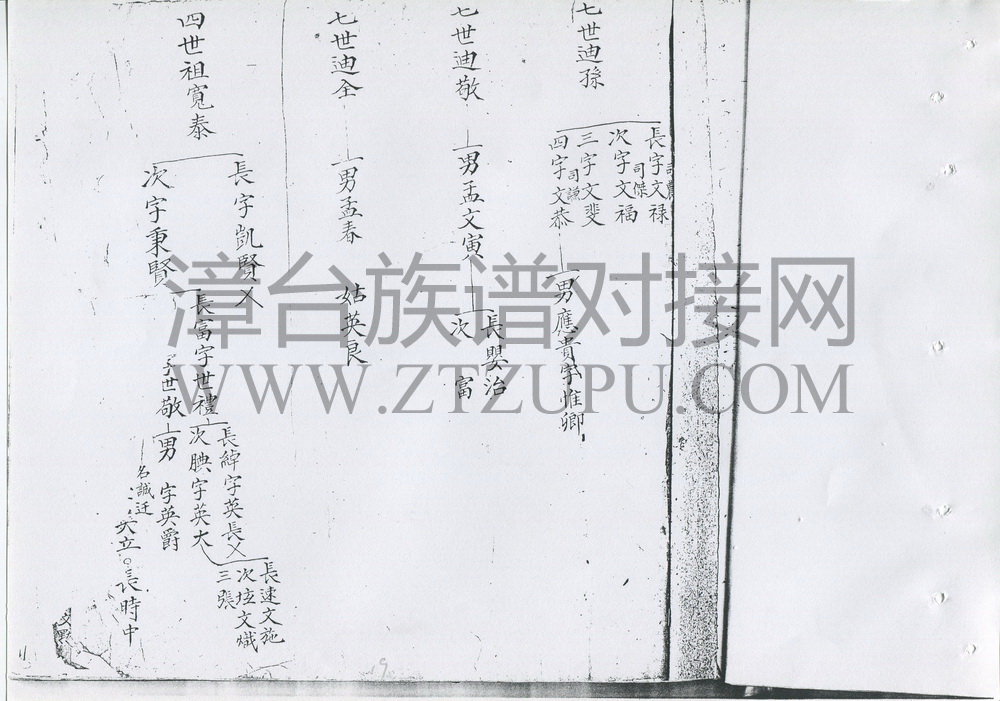 七世迪孫
長字文禄
司農
次字文福
司傑
三字文斐
司謙
四字文恭
男應貴字惟卿
七世迪敬
男孟文寅
長嬰治
次 富
七世迪全
男孟春
姑英良
四世祖寬泰
長字凱賢乂
次字秉賢
長富字世禮
字世敬
長緯字英長乂
次腆字英大
男 字英爵
名誠迁
長速文施
次垃文熾
三張
英立 長時中
漳台族谱对接网
WWW.ZTZUPU.COM
9